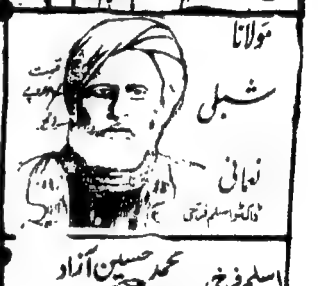 مولانا
شبلی
نعمانی
قیمت
ڈاکٹر اسلم فرخی
محمد حسین آزاد
اسلم فرخی